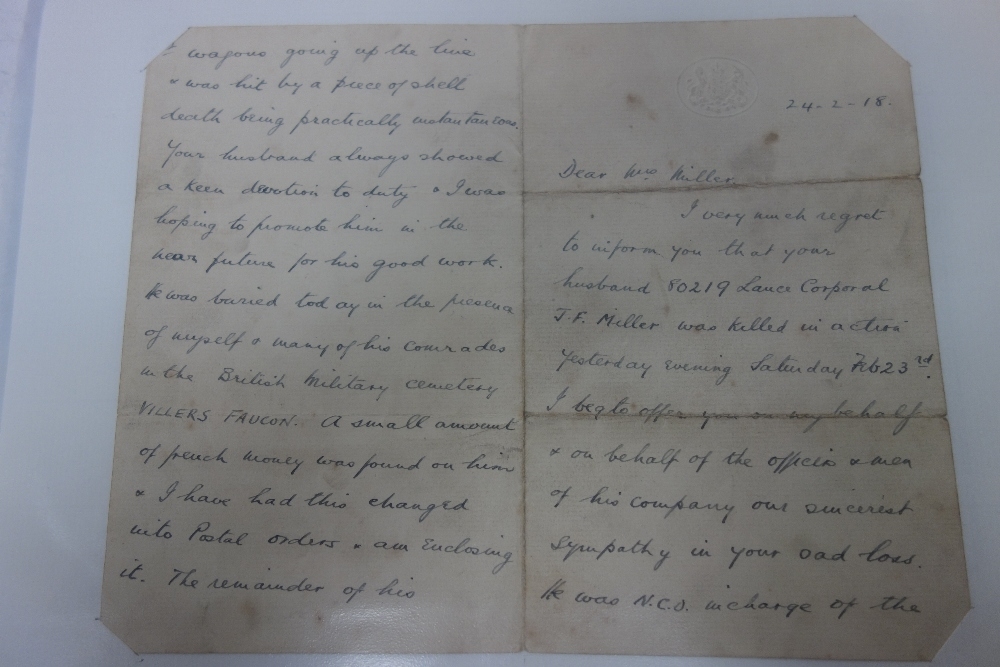 24-2-18.
Dear Mrs Miller
I very much regret
to inform you that your
husband 80219 Lance Corporal
J.F. Miller was killed in action
yesterday evening Saturday Feb 23rd.
I beg to offer you on my behalf
& on behalf of the officers & men
of his company our sincerest
sympathy in your sad loss.
He was N.C.O. incharge of the
wagons going up the line
& was hit by a piece of shell
death being practically instantaneous.
Your husband always showed
a keen devotion to duty & I was
hoping to promote him in the
near future for his good work.
He was buried today in the presence
of myself & many of his comrades
in the British Military cemetery
VILLERS FAUCON. A small amount
of french money was found on him
& I have had this changed
into Postal orders & am Enclosing
it. The remainder of his